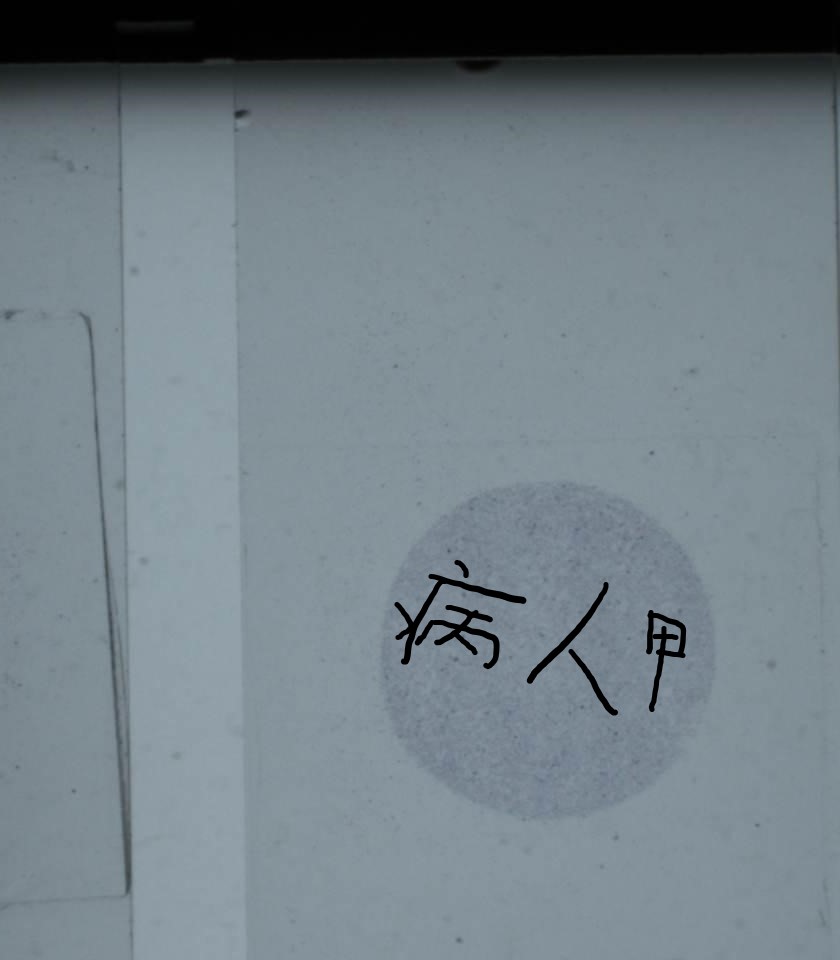 病人甲